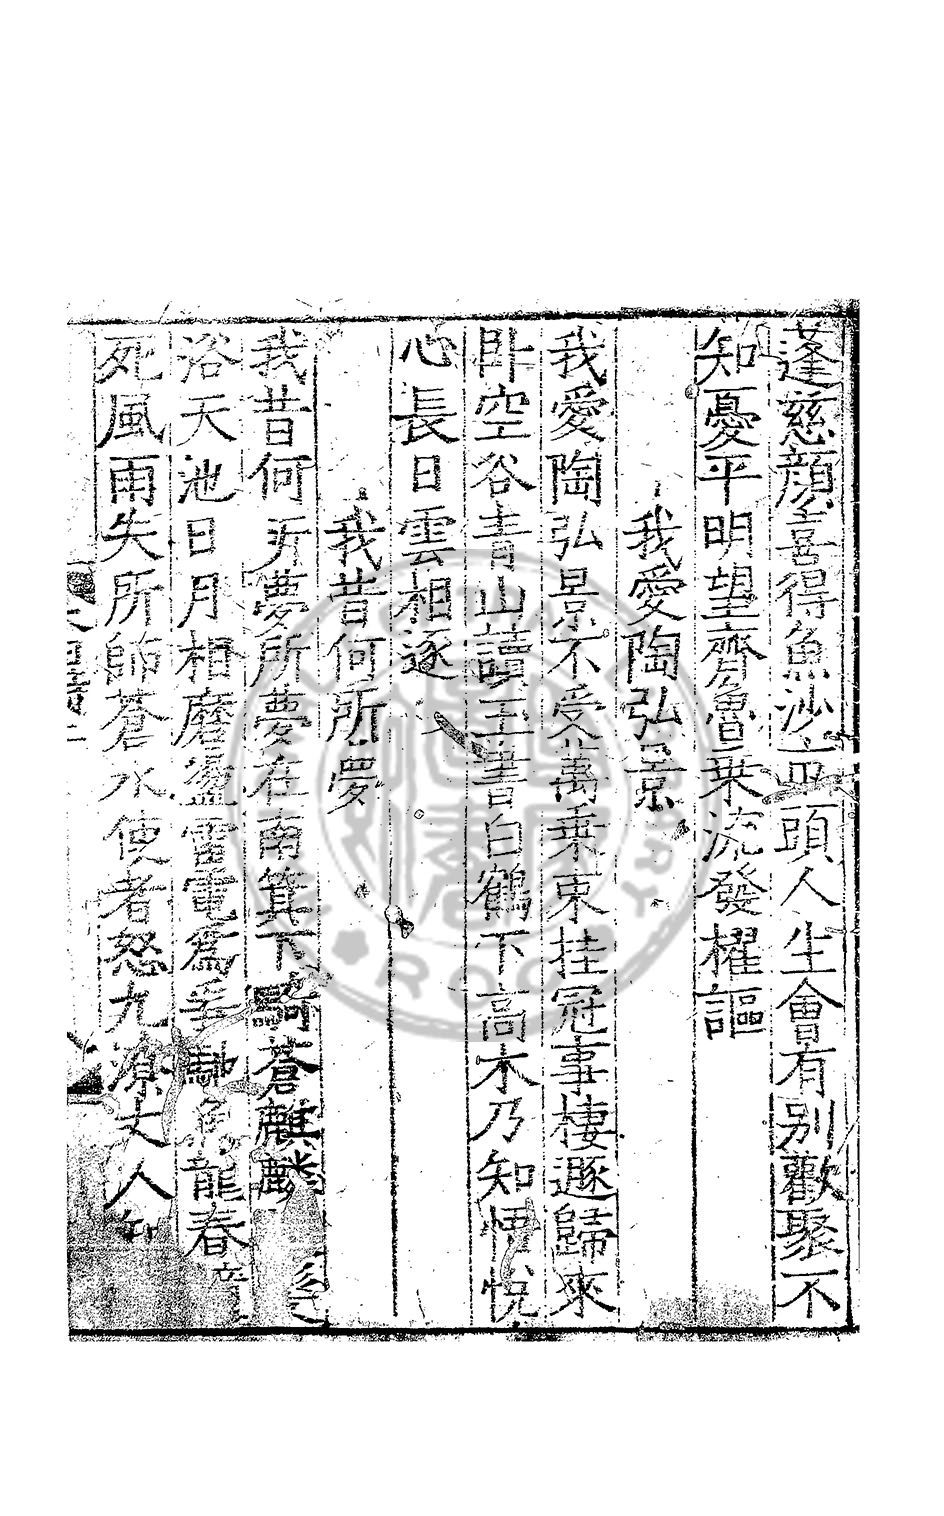 蓬慈顔喜得魚沙頭人生會有别歡聚不
知憂平明望齊魯乗流發櫂謳
我愛陶弘景
我愛陶弘景不受萬乗束挂冠事棲遯歸來
卧空谷青山讀玉書白鶴下高木乃知怡悦
心長日雲相逐
我昔何所夢
我昔何所夢所夢在南箕下騎蒼麒麟
浴天池日月相磨盪雷電爲馳龍春
死風雨失所師蒼水使者怒九潦丈人